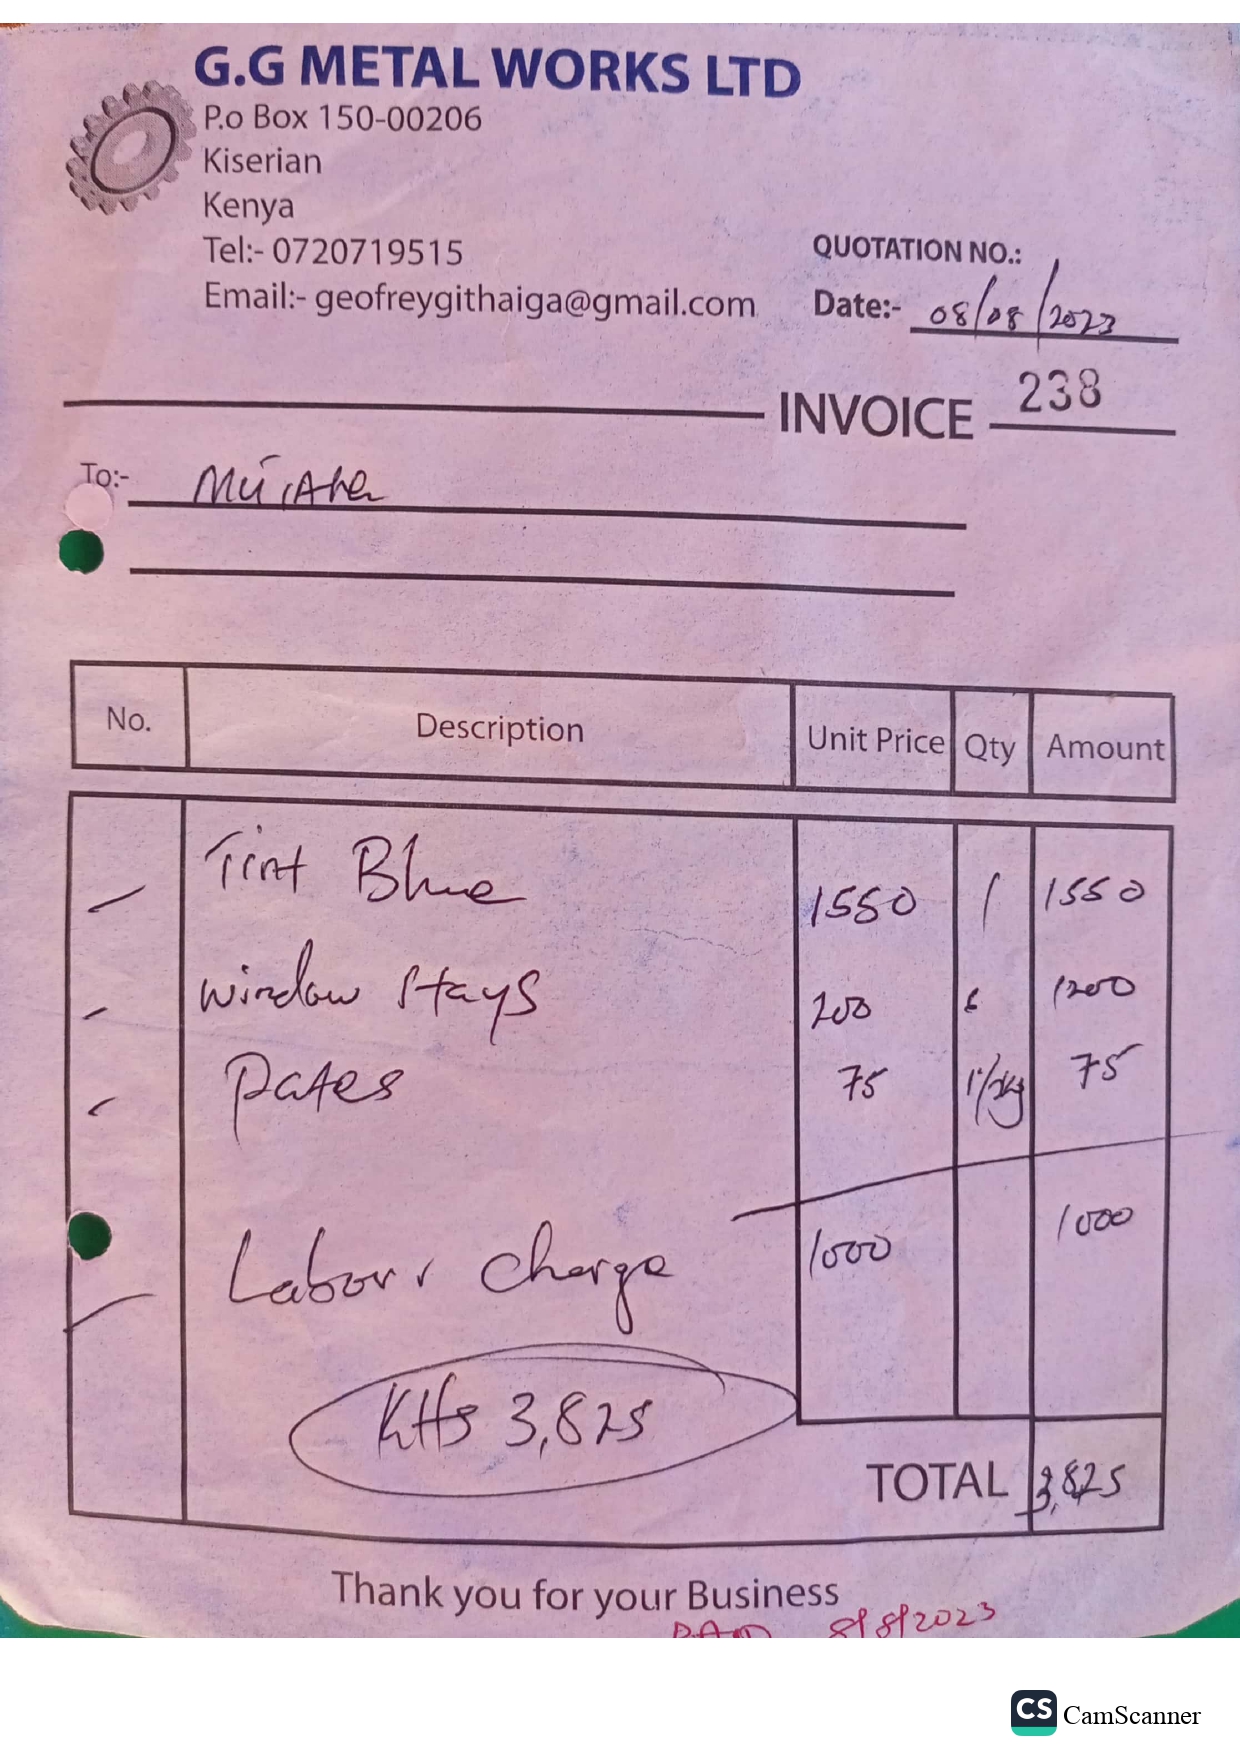 G.G METAL WORKS LTD
P.o Box 150-00206
Kiserian
Kenya
Tel:- 0720719515
Email:- geofreygithaiga@gmail.com
QUOTATION NO.:
Date:- 08/08/2023
INVOICE 238
To:-
No. Description Unit Price Qty Amount
Tint Blue 1550 1 1550
Window stays 200 6 1200
75 75
Labour charge 1000 1000
KHs 3,825
TOTAL 3,825
Thank you for your Business
PAID 8/8/2023
CS CamScanner